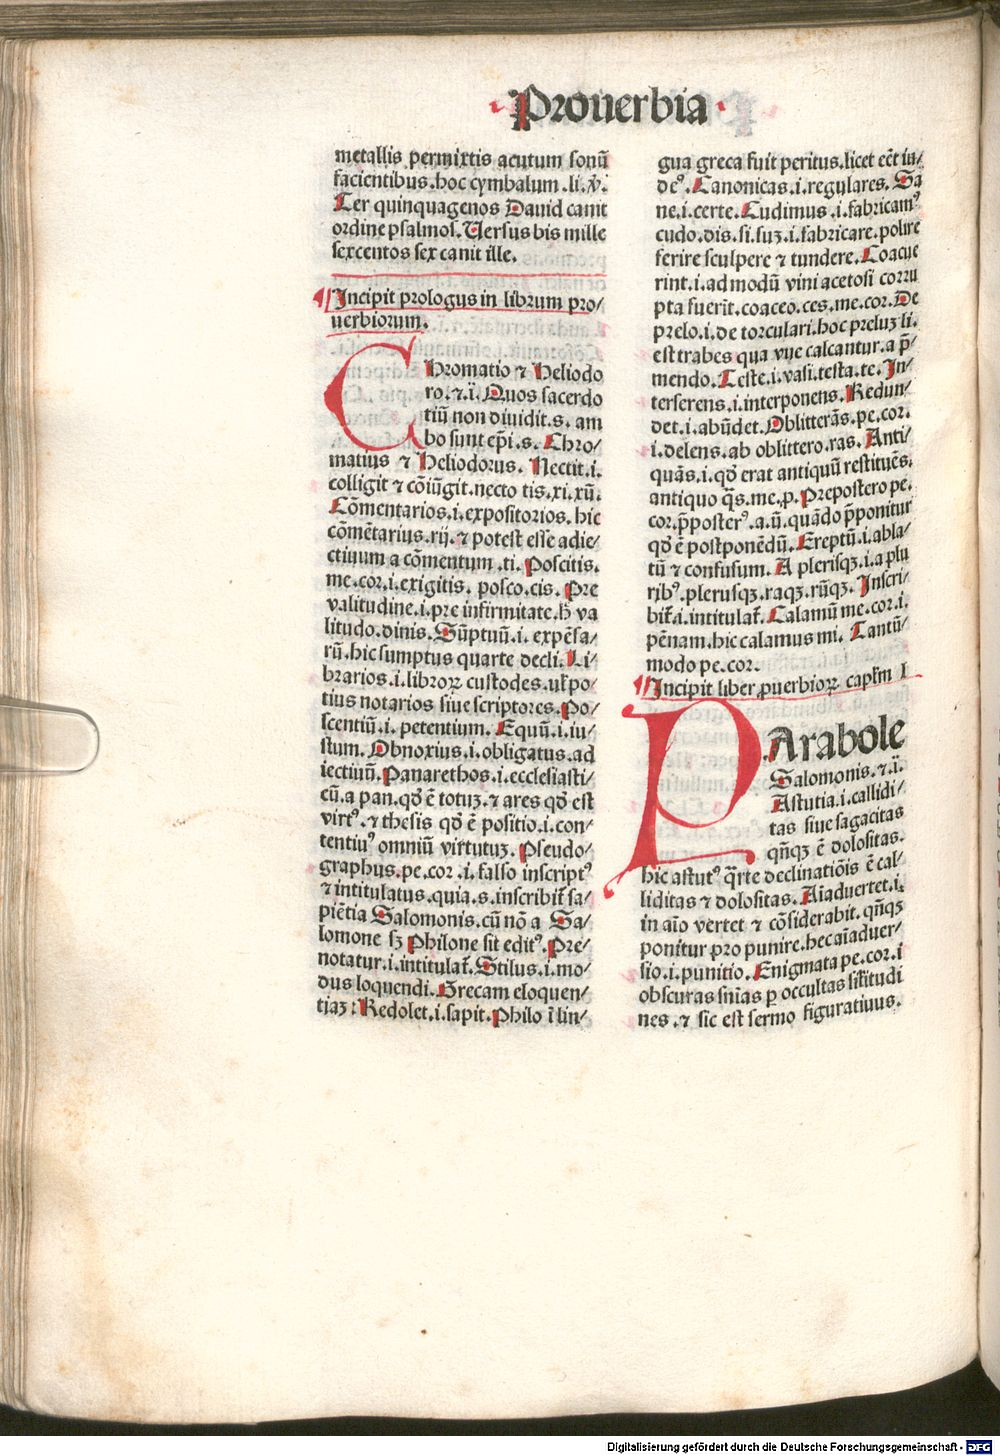 Prouerbia
metallis permixtis acutum sonũ
facientibus.hoc cymbalum.li.
Ter quinquagenos Dauid canit
ordine psalmos. Uersus bis mille
sexcentos sex canit ille.
Incipit prologus in librum pro/
uerbiorum.
Chromatio ⁊ Heliodo
ro.⁊.i. Quos sacerdo
tiũ non diuidit.s. am
bo sunt ep̃i.s. Chro/
matius ⁊ Heliodorus. Nectit.i.
colligit ⁊ cõiũgit.necto tis.xi.xũ.
Cõmentarios.i.expositorios. hic
cõmẽtarius.rij.⁊ potest esse adie/
ctiuum a cõmentum .ti. Poscitis.
me.cor.i.exigitis. posco.cis. Pre
valitudine.i.pre infirmitate.h̃ va
litudo.dinis. Sũptuũ.i. expẽsa/
rũ.hic sumptus quarte decli. Li/
brarios.i.libroꝝ custodes.vl̃ po/
tius notarios siue scriptores. Po/
scentiũ.i. petentium. Equũ.i.iu/
stum. Obnoxius.i.obligatus.ad
iectiuũ. Panarethos.i.ecclesiasti/
cũ.a pan.qď ẽ totuʒ.⁊ ares qď est
virtꝰ.⁊ thesis qď ẽ positio.i.con/
tentiuꝰ omniũ virtutuʒ. Pseudo/
graphus.pe.cor.i.falso inscriptꝰ
⁊ intitulatus.quia.s.inscribit̃ sa/
piẽtia Salomonis.cũ nõ a Sa/
lomone sʒ Philone sit editꝰ. Pre/
notatur.i.intitulat̃. Stilus.i.mo/
dus loquendi. Grecam eloquen/
tiaʒ: Redolet.i.sapit. Philo ĩ lin/
gua greca fuit peritus.licet eẽt iu/
deꝰ. Canonicas.i.regulares. Sa
ne.i.certe. Cudimus.i.fabricamꝰ
cudo.dis.si.suʒ.i.fabricare.polire
ferire sculpere ⁊ tundere. Coacue
rint.i.ad modũ vini acetosi corru
pta fuerĩt.coaceo.ces.me.cor. De
prelo.i.de torculari.hoc preluʒ li.
est trabes qua vue calcantur.a p̃/
mendo. Teste.i.vasi.testa.te. In/
terserens.i.interponens. Redun/
det.i.abũdet. Oblitterãs.pe.cor.
i.delens.ab oblittero.ras. Anti/
quãs.i.qď erat antiquũ restituẽs.
antiquo q̃s.me.p. Prepostero pe.
cor.p̃posterꝰ.a.ũ.quãdo p̃ponitur
qď ẽ postponẽdũ. Ereptũ.i.abla/
tũ ⁊ confusum. A plerisqʒ.i.a plu
ribꝰ.plerusqʒ.raqʒ.rũqʒ. Inscri/
bit̃.i.intitulat̃. Calamũ me.cor.i.
pẽnam.hic calamus mi. Tantũ/
modo pe.cor.
Incipit liber ꝓuerbioꝝ capl̃m I
PArabole
Salomonis.⁊.i.
Astutia.i.callidi/
tas siue sagacitas
qñqʒ ẽ dolositas.
hic astutꝰ q̃rte declinatiõis ẽ cal/
liditas ⁊ dolositas. Aĩaduertet.i.
in aĩo vertet ⁊ cõsiderabit.qñqʒ
ponitur pro punire.hec aĩaduer/
sio.i.punitio. Enigmata pe.cor.i
obscuras sñias ꝑ occultas sil̃itudi
nes.⁊ sic est sermo figuratiuus.
Digitalisierung gefördert durch die Deutsche Forschungsgemeinschaft - DFG